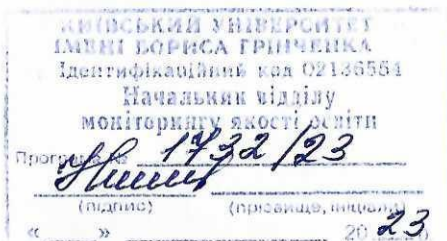 КИЇВСЬКИЙ УНІВЕРСИТЕТ
ІМЕНІ БОРИСА ГРІНЧЕНКА
Ідентифікаційний код 02136554
Начальник відділу
моніторингу якості освіти
Програма № 1732/23
(підпис) (прізвище, ініціали)
« » 20 23